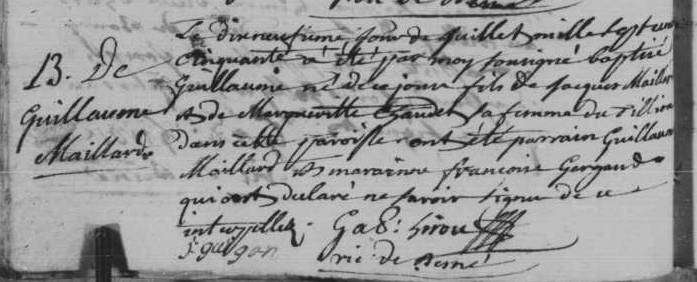 13. De
Guillaume
Maillard
Le dixneufieme jour de juillet mille sept cent
Cinquante a été par moy sousigné baptisé
Guillaume né de ce jour fils de Jacques Maillard
et de Margueritte Chaudet sa femme du
dans cette paroisse ont été parrain Guillaume
Maillard et maraine francoise
qui ont declaré ne savoir signer de ce
interpellez.
Gab: Sirou
vic: de